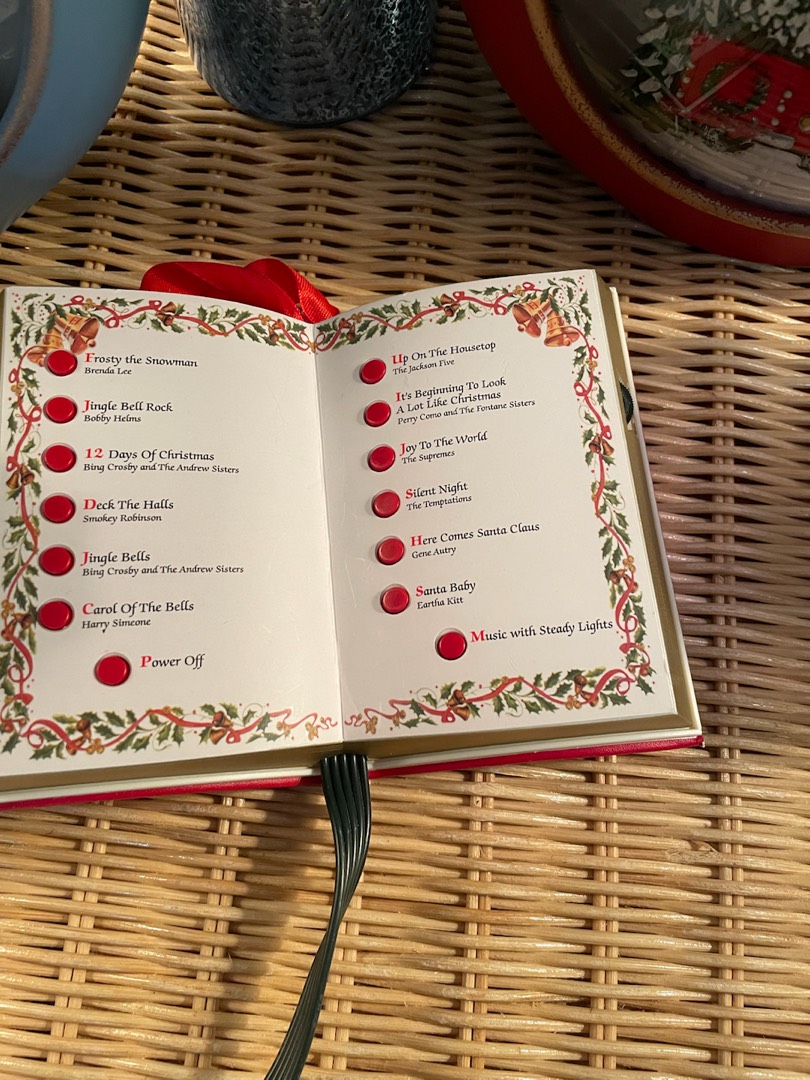 Frosty the Snowman
Brenda Lee
Jingle Bell Rock
Bobby Helms
12 Days Of Christmas
Bing Crosby and The Andrew Sisters
Deck The Halls
Smokey Robinson
Jingle Bells
Bing Crosby and The Andrew Sisters
Carol Of The Bells
Harry Simeone
Power Off
Up On The Housetop
The Jackson Five
It's Beginning To Look
A Lot Like Christmas
Perry Como and The Fontane Sisters
Joy To The World
The Supremes
Silent Night
The Temptations
Here Comes Santa Claus
Gene Autry
Santa Baby
Eartha Kitt
Music with Steady Lights